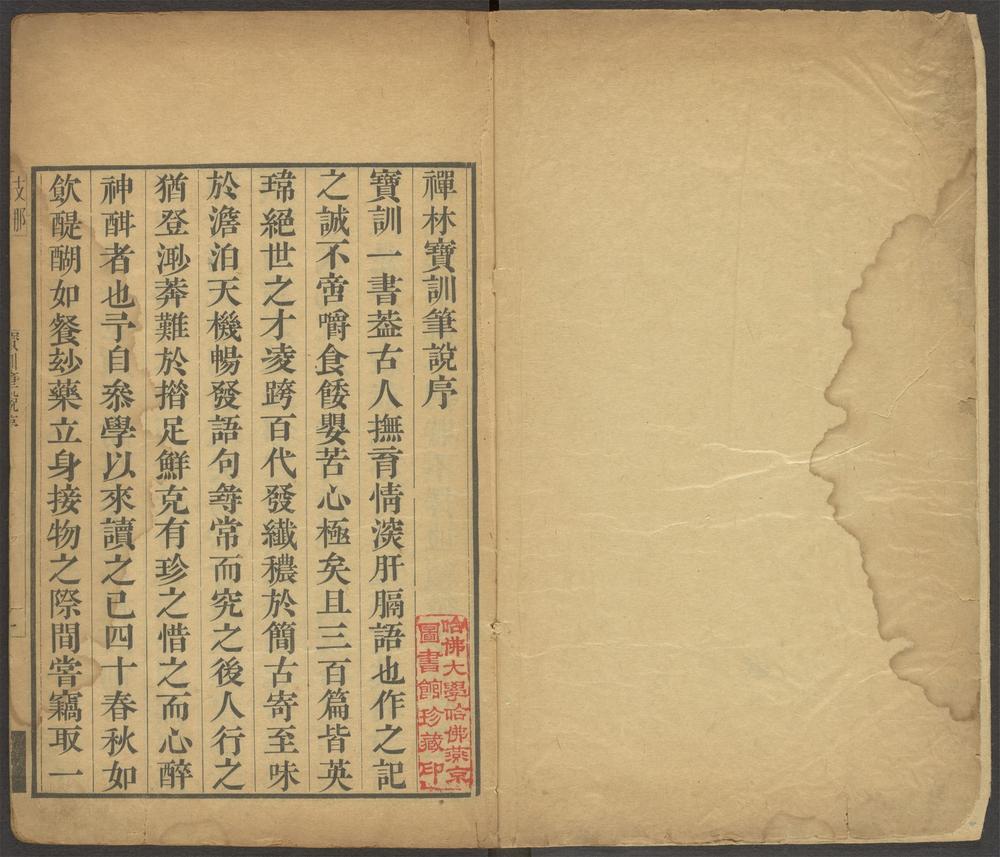 禪林寶訓筆說序
寶訓一書葢古人撫育情深肝膈語也作之記
之誠不啻嚼食餧嬰苦心極矣且三百篇皆英
瑋絕世之才凌跨百代發纖穠於簡古寄至味
於澹泊天機暢發語句尋常而究之後人行之
猶登渺莽難於揩足鮮克有珍之惜之而心醉
神酣者也予自叅學以來讀之已四十春秋如
飲醍醐如餐玅藥立身接物之際間嘗竊取一
哈佛大學哈佛燕京
圖書館珍藏印
支那
寶訓筆說序
一